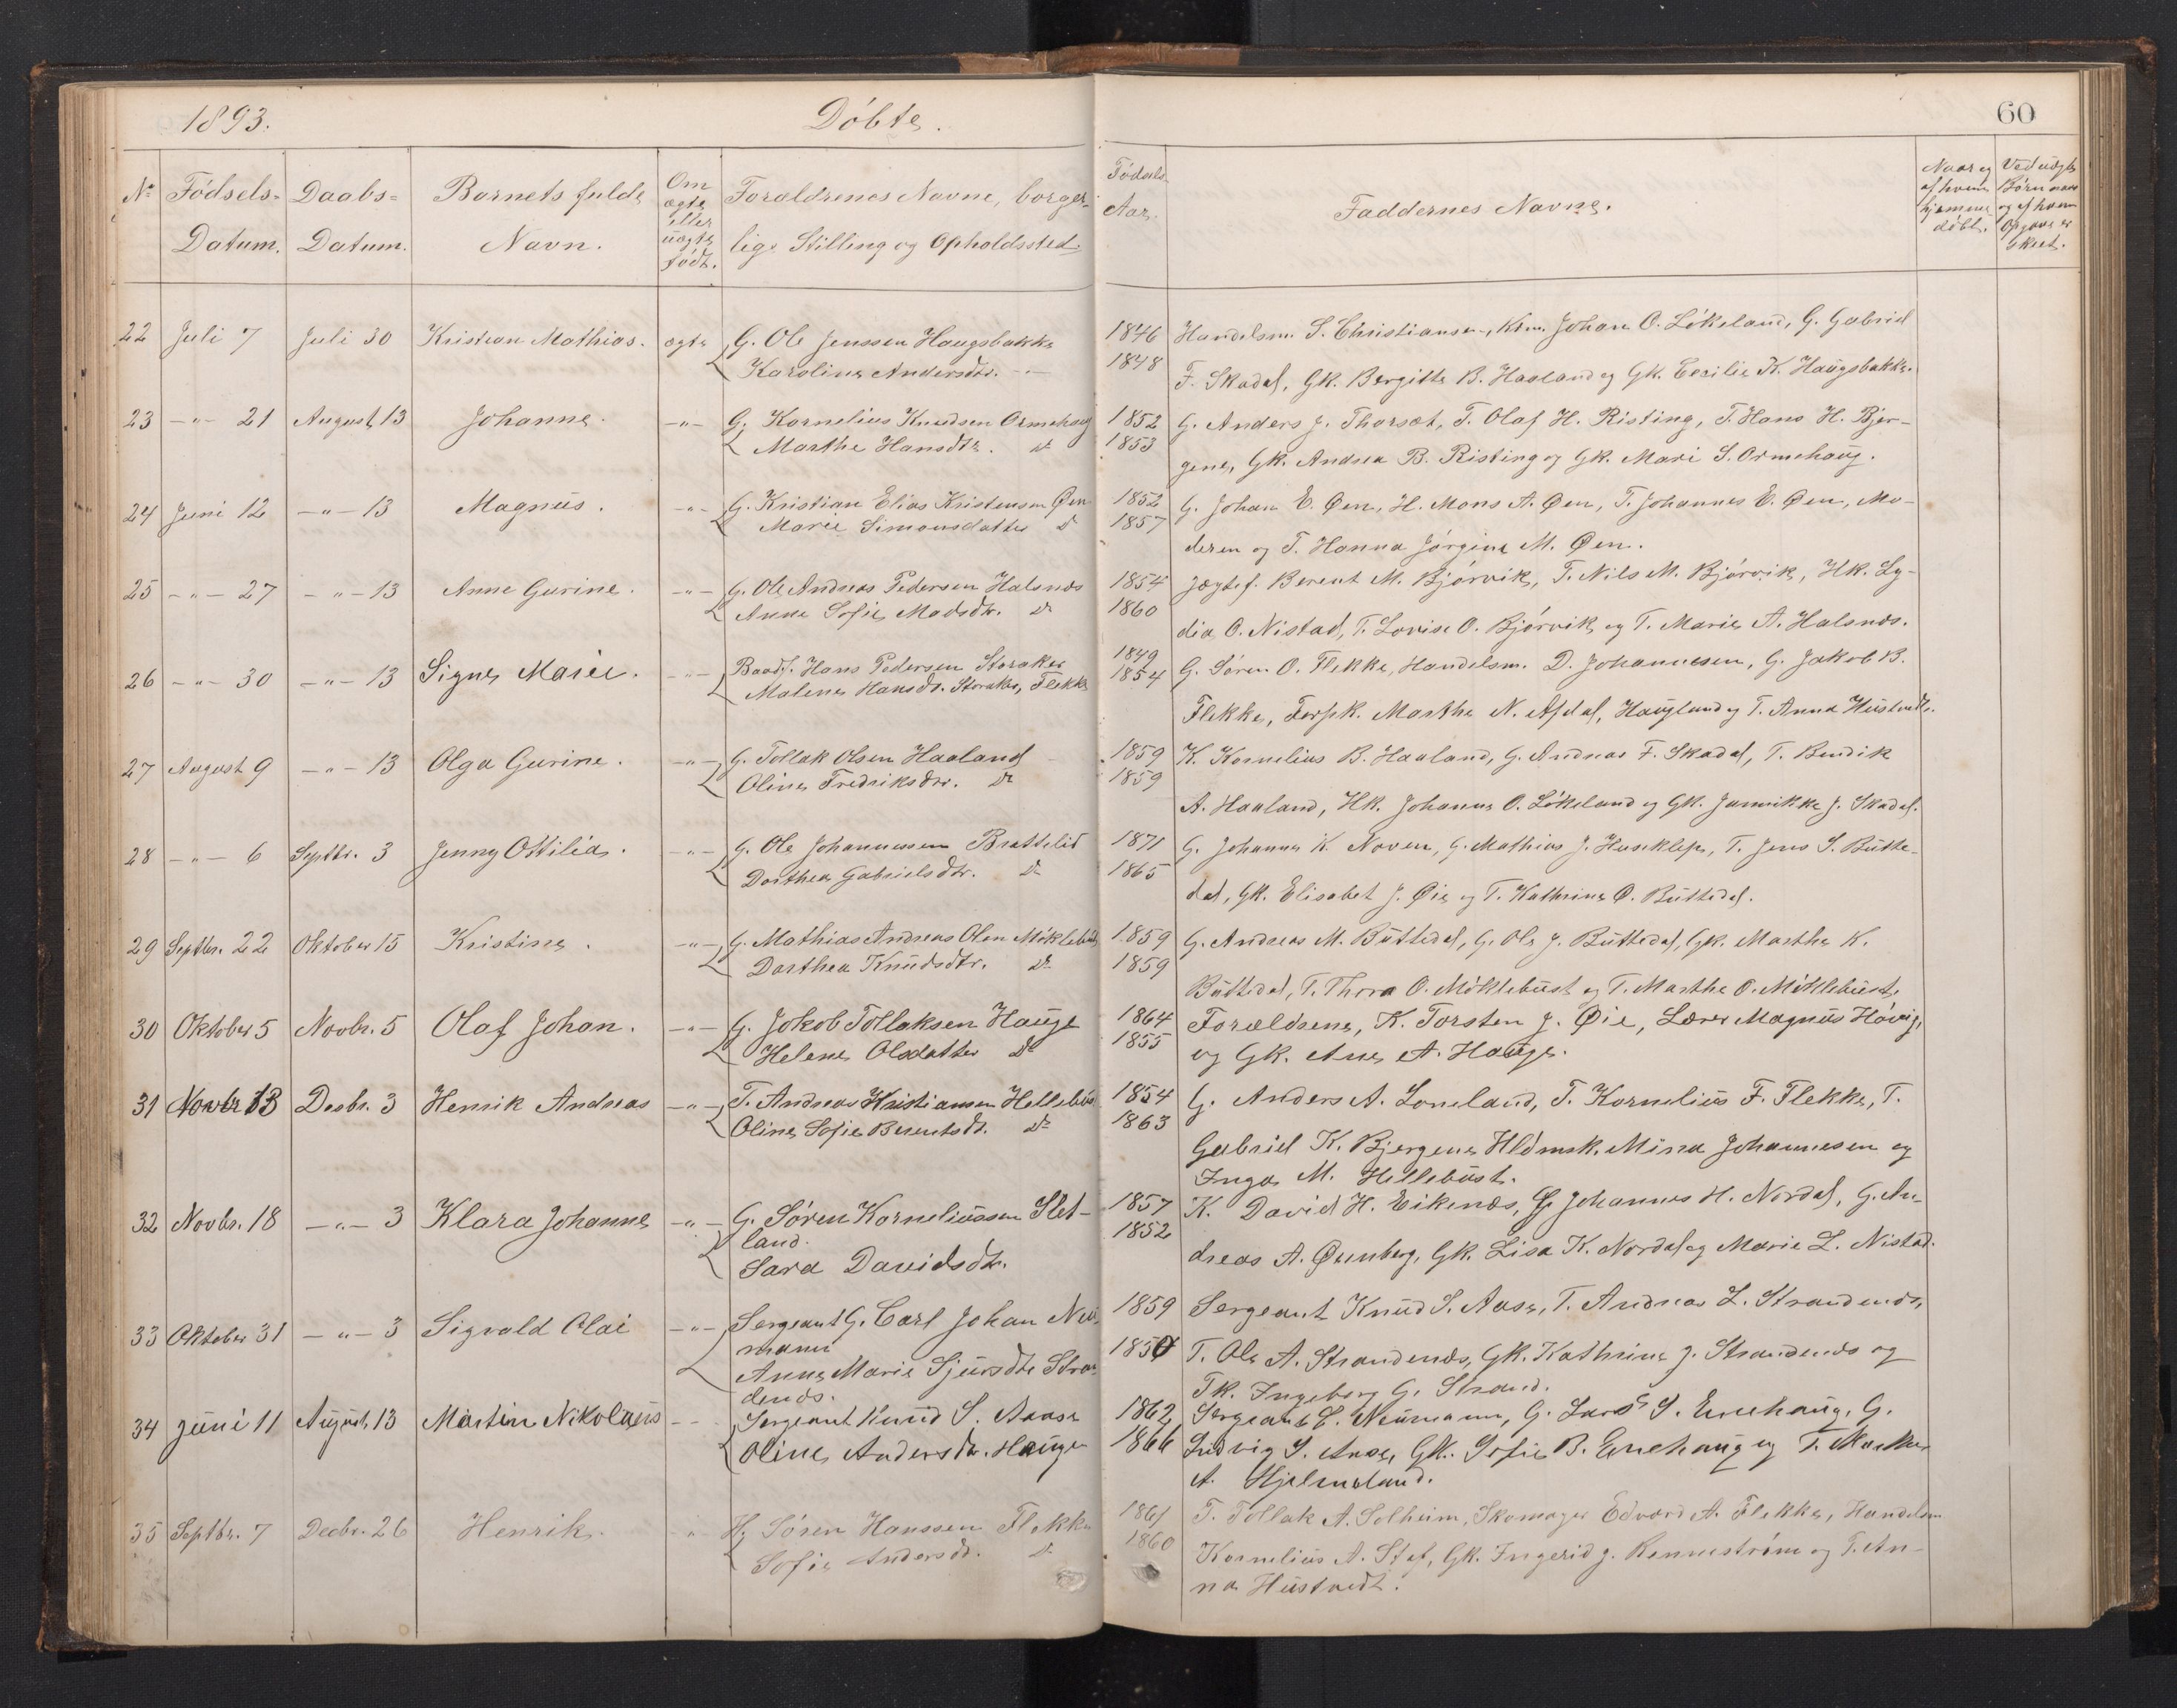 1893. Døbte. 60
No Fødsels-Datum. Daabs-Datum. Barnets fulde Navn. Om ægte eller uægte født. Forældrenes Navne, borgerlige Stilling og Opholdssted. Fødsels Aar. Faddernes Navne. Naar og af hvem hjemmedøbt. Ved uægte Børn naar og af hvem Opgave er skeet.
22 Juli 7 Juli 30 Kristian Mathias. ægte G. Ole Jenssen Haugsbakke 1846 Handelsm. S. Christiansen, Krm. Johan O. Løkeland, G. Gabriel
Karoline Andersdtr. -"- 1848 F. Skadal, Gk. Bergitte B. Haaland og Gk. Cecilie K. Haugsbakke.
23 -"- 21 August 13 Johanne. -"- G. Kornelius Knudsen Ormehaug 1852 G. Anders J. Thorsæt, T. Olaf H. Risting, T. Hans H. Bjer-
Marthe Hansdtr. do 1853 gene, Gk. Andrea B. Risting og Gk. Mari S. Ormehaug.
24 Juni 12 -"- 13 Magnus. -"- G. Kristian Elias Kristensen Øen 1852 G. Johan E. Øen, H. Mons A. Øen, T. Johannes E. Øen, Mo-
Marie Simonsdatter do 1857 deren og T. Hanna Jørgine M. Øen.
25 -"- 27 -"- 13 Anne Gurine. -"- G. Ole Andreas Pedersen Halsnæs 1854 Jægtef. Berent M. Bjørvik, T. Nils M. Bjørvik, Hk. Ly-
Anne Sofie Madsdtr. do 1860 dia O. Nistad, T. Lovise O. Bjørvik og T. Marie A. Halsnæs.
26 -"- 30 -"- 13 Signe Marie. -"- Baadf. Hans Pedersen Storaker 1849 G. Søren O. Flekke, Handelsm. D. Johannesen, G. Jakob B.
Malene Hansdr. Storaker, Flekke 1854 Flekke, Ferpk. Marthe N. Afdal, Haugland og T. Anna Hustvedt.
27 August 9 -"- 13 Olga Gurine. -"- G. Tollak Olsen Haaland 1859 K. Kornelius B. Haaland, G. Andreas F. Skadal, T. Bendik
Oline Fredriksdtr. do 1859 A. Haaland, Hk. Johanne O. Løkeland og Gk. Jannikke J. Skadal.
28 -"- 6 Septbr. 3 Jenny Ottilia. -"- G. Ole Johannessen Brattelid 1871 G. Johannes K. Noven, G. Mathias J. Huseklep, T. Jens S. Butte-
Dorthea Gabrielsdtr. do 1865 dal, Gk. Elisabet J. Øie og T. Kathrine O. Buttedal.
29 Septbr. 22 Oktober 15 Kristine. -"- G. Mathias Andreas Olsen Møklebust 1859 G. Andreas M. Buttedal, G. Ole J. Buttedal, Gk. Marthe K.
Dorthea Knudsdtr. do 1859 Buttedal, T. Thora O. Møklebust og T. Marthe O. Møklebust.
30 Oktober 5 Novbr. 5 Olaf Johan. -"- G. Jakob Tollaksen Hauge 1864 Forældrene, K. Torsten J. Øie, Lærer Magnus Høivig,
Helene Olsdatter do 1855 og Gk. Ane A. Hauge.
31 Novbr 13 Desbr. 3 Henrik Andreas -"- T. Andreas Kristiansen Hellebust 1854 G. Anders A. Loneland, T. Kornelius F. Flekke, T.
Oline Sofie Berentsdt. do 1863 Gabriel K. Bjergene, Hldmsk. Mina Johannesen og
Inga M. Hellebust.
32 Novbr. 18 -"- 3 Klara Johanne -"- G. Søren Korneliussen Slet- 1857 K. David H. Eikenæs, G. Johannes H. Nordal, G. An-
land. 1852 dreas A. Ørenberg, Gk. Lisa K. Nordal og Marie L. Nistad.
Sara Davidsdtr.
33 Oktober 31 -"- 3 Sigvald Olai -"- Sergeant G. Carl Johan Neu- 1859 Sergeant Knud S. Aase, T. Andreas L. Strandenæs,
mann 1850 T. Ole A. Strandenæs, Gk. Kathrine J. Strandenæs og
Anne Marie Sjursdtr Stran- Tk. Ingeborg G. Strand.
denæs.
34 Juni 11 August 13 Martin Nikolaus -"- Sergeant Knud S. Aase 1862 Sergeant C. Neumann, G. Lars S. Ernehaug, G.
Oline Andersdtr. Hauge 1866 Ludvig S. Aase, Gk. Sofie B. Ernehaug og T. Marthe
A. Hjelmeland.
35 Septbr. 7 Decbr. 26 Henrik. " H. Søren Hanssen Flekke 1861 T. Tollak A. Solheim, Skomager Edvard A. Flekke, Handelsm.
Sofie Andersdt. do 1860 Kornelius A. Staf, Gk. Ingerid J. Rennestrøm og T. An-
na Hustvedt.